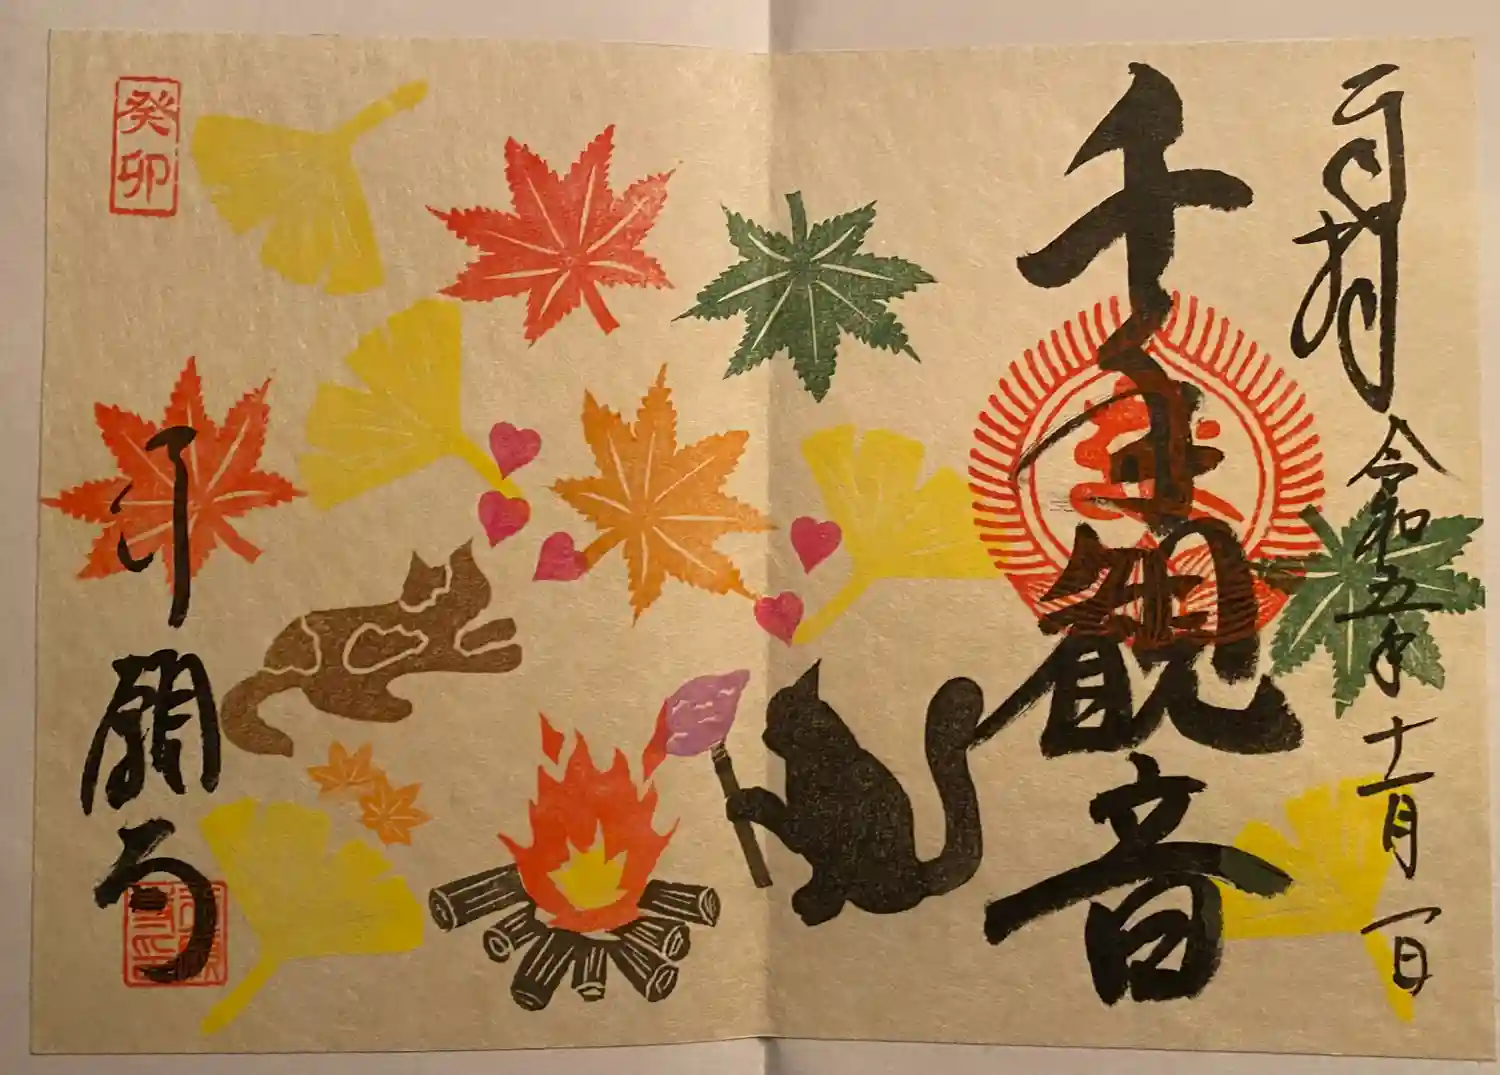 奉拝
令和五年十一月一日
千手観音
行願寺
癸卯